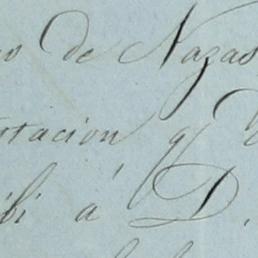 de Nazas
tacion q
bi á D.